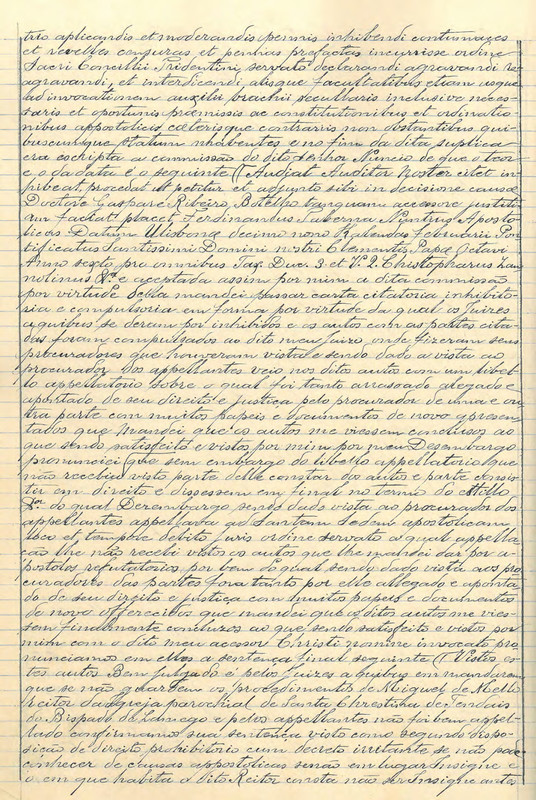 trio aplicandis et moderandis pennis inhibendi contumaces
et revelles censuras et penhas prefactas incurrisse ordine
Sacri Concillii Tridentini servato declarandi agravandi re-
agravandi, et interdicendi, aliisque facultatibus etiam usque
ad invocationem auxilii brachii secullaris inclusive neces-
sariis et oportunis præmissis ac constitutionibus et ordinatio-
nibus appostolicis caterisque contrariis non obstantibus qui-
buscumque statum nhabentes e no fim da dita suplica
era escripta a commissão do dito senhor Nuncio de que o teor
e o da data é o seguinte (Audiat Auditor Noster citet in-
hibeat, procedat ut petitur et adjunto sibi in decisione causæ
Doctore Gaspare Ribeiro Botelho tanquam accessore justiti-
am faciat placet, Ferdinandus Taberna Nuntius Aposto-
licus Datum Ulisbonæ decimo nono Kalendas Februarii Pon-
tificatus Santissimi Domini nostri Clementis Papæ Octavi
Anno sexto pro omnibus Tax. Duc. 3 et Christopharus
e aceptada assim por mim a dita commissão
por virtude della mandei passar carta citatoria inhibito-
ria e compulsoria em forma por virtude da qual os juizes
a quibus se deram por inhibidos e os autos com as partes cita-
das foram compulsados ao dito meu juizo, onde fizeram seus
procuradores que houveram vista e sendo dado a vista ao
procurador dos appellantes veio nos ditos autos com um libel-
lo appellatorio sobre o qual foi tanto arresoado alegado e
apontado de seu direito e justiça pelo procurador de uma e ou-
tra parte com muitos papeis e documentos de novo apresen-
tados que mandei que os autos me viessem conclusos ao
que sendo satisfeito e vistos por mim por meu Desembargo
pronunciei que sem embargo do libello appellatorio que
não recebia visto parte delle constar dos autos e parte consis-
tir em direito e dissessem em final no termo do stillo
do qual Desembargo sendo dado vista ao procurador dos
appellantes appellava ad Santam Sedem apostolicam
loco et tempore debito juris ordine servato a qual appella-
ção lhe não recebi vistos os autos que lhe mandei dar por a-
postolos refutatorios por bem do qual sendo dado vista aos pro-
curadores das partes fora tanto por elle allegado e aponta-
do de seu direito e justiça com muitos papeis e documentos
de novo offerecidos que mandei que os ditos autos me vies-
sem finalmente concluzos ao que sendo satisfeito e vistos por
mim com o dito meu acessor Christi nomine invocato pro-
nunciamos em elles a sentença final seguinte (Vistos es-
tes autos Bem julgado é pelos juizes a quibus em mandarem
que se não guardem os procedimentos de Miguel de Mello
Reitor da Igreja parochial de Santa Chrestinha de Tendais
do Bispado de Lamego e pelos appellantes não foi bem appel-
lado confirmamos sua sentença visto como segundo dispo-
sição de direito prohibitorio cum decreto irritante se não pode
conhecer de causas appostolicas senão em lugar Insigne e
o em que habita o dito Reitor consta não ser Insigne antes